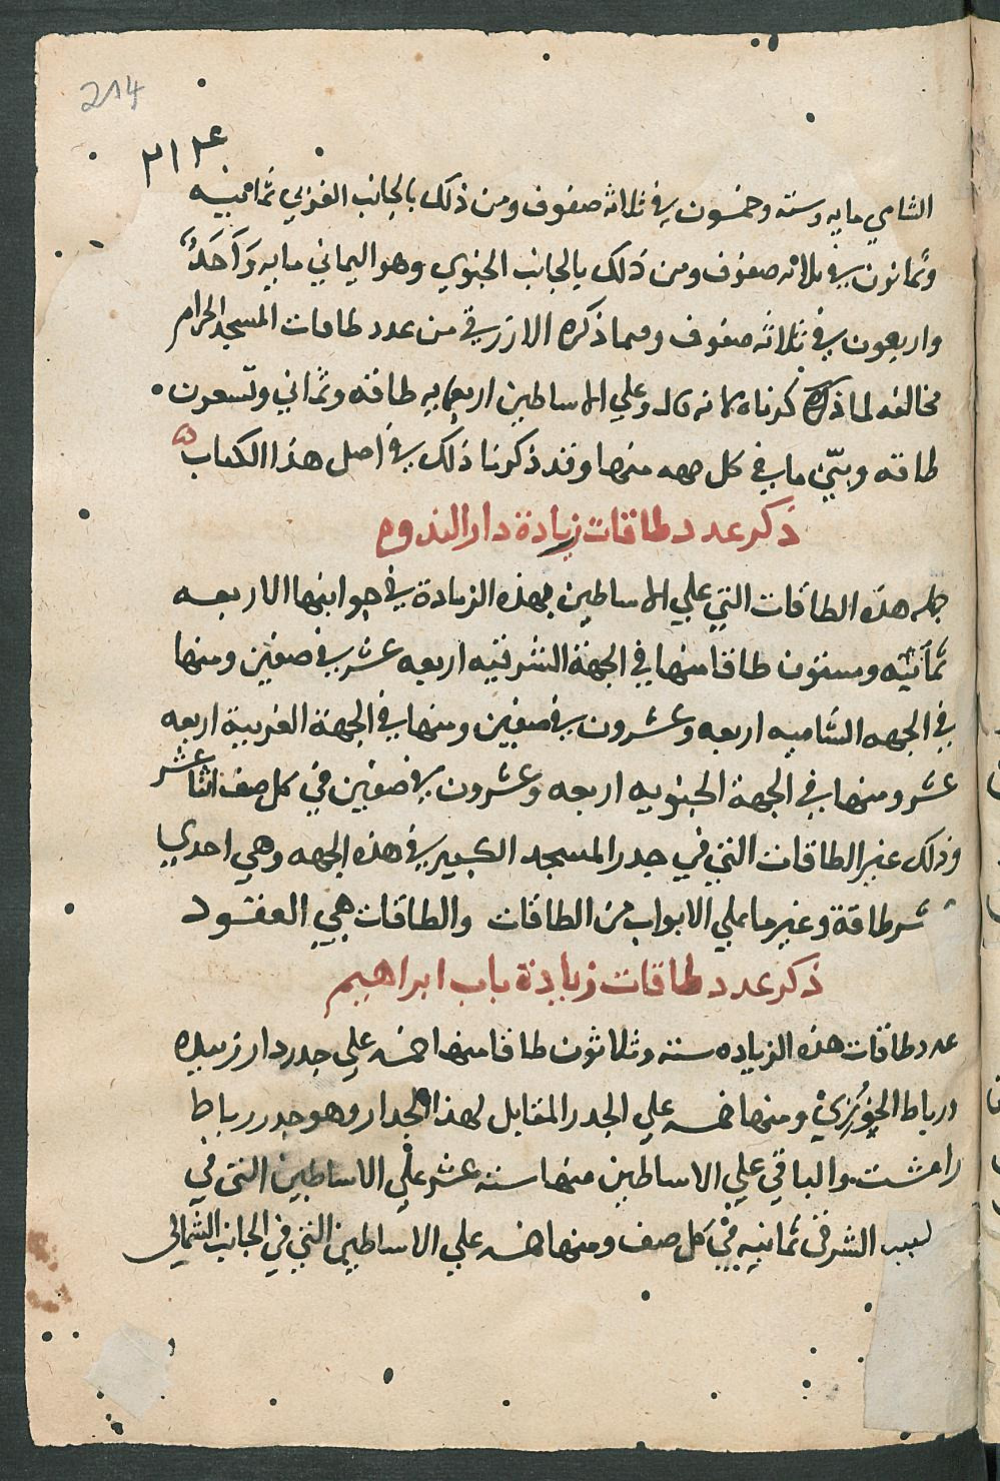 214
٢١٣٤
الشامي مايه وسته وخمسون في ثلاثه صفوف ومن ذلك بالجانب الغزبي ثمانيه
وثمانون في ثلاثه صفوف ومن ذلك بالجانب الجنوبي وهو اليماني مايه وَاَحَدُ
واربعون في ثلاثه صفوف وفيما ذكره الازرقي من عدد طاقات المسجد الحرام
مخالفه لما ذكرناه لانه قال وعلي الاساطين اربعمايه طاقه وثماني وتسعون
طاقه وبيّن ما في كل جهه منها وقد ذكرنا ذلك في اصل هذا الكتاب
ذكر عدد طاقات زيادة دار الندوه
جمله هذه الطاقات التي علي الاساطين بهذه الزيادة في جوانبها الاربعه
ثمانيه وستون طاقا منها في الجهة الشرقيه اربعه عشر في صفين ومنها
في الجهه الشاميه اربعه وعشرون في صفين ومنها في الجهة الغربية اربعه
عشر ومنها في الجهة الجنوبيه اربعه وعشرون في صفين في كل صف اثنا عشر
وذلك غير الطاقات التي في جدر المسجد الكبير في هذه الجهه وهي احدي
عشر طاقة وغير ما علي الابواب من الطاقات والطاقات هي العقود
ذكر عدد طاقات زيادة باب ابراهيم
عدد طاقات هذه الزياده سته وثلاثون طاقا منها خمسه علي جدر دار زبيده
ورباط الخوزي ومنها خمسه علي الجدر المقابل لهذا الجدار وهو جدر رباط
رامشت والباقي علي الاساطين منها سته عشر علي الاساطين التي في
الشرقي ثمانيه في كل صف ومنها خمسه علي الاساطين التي في الجانب الشمالي